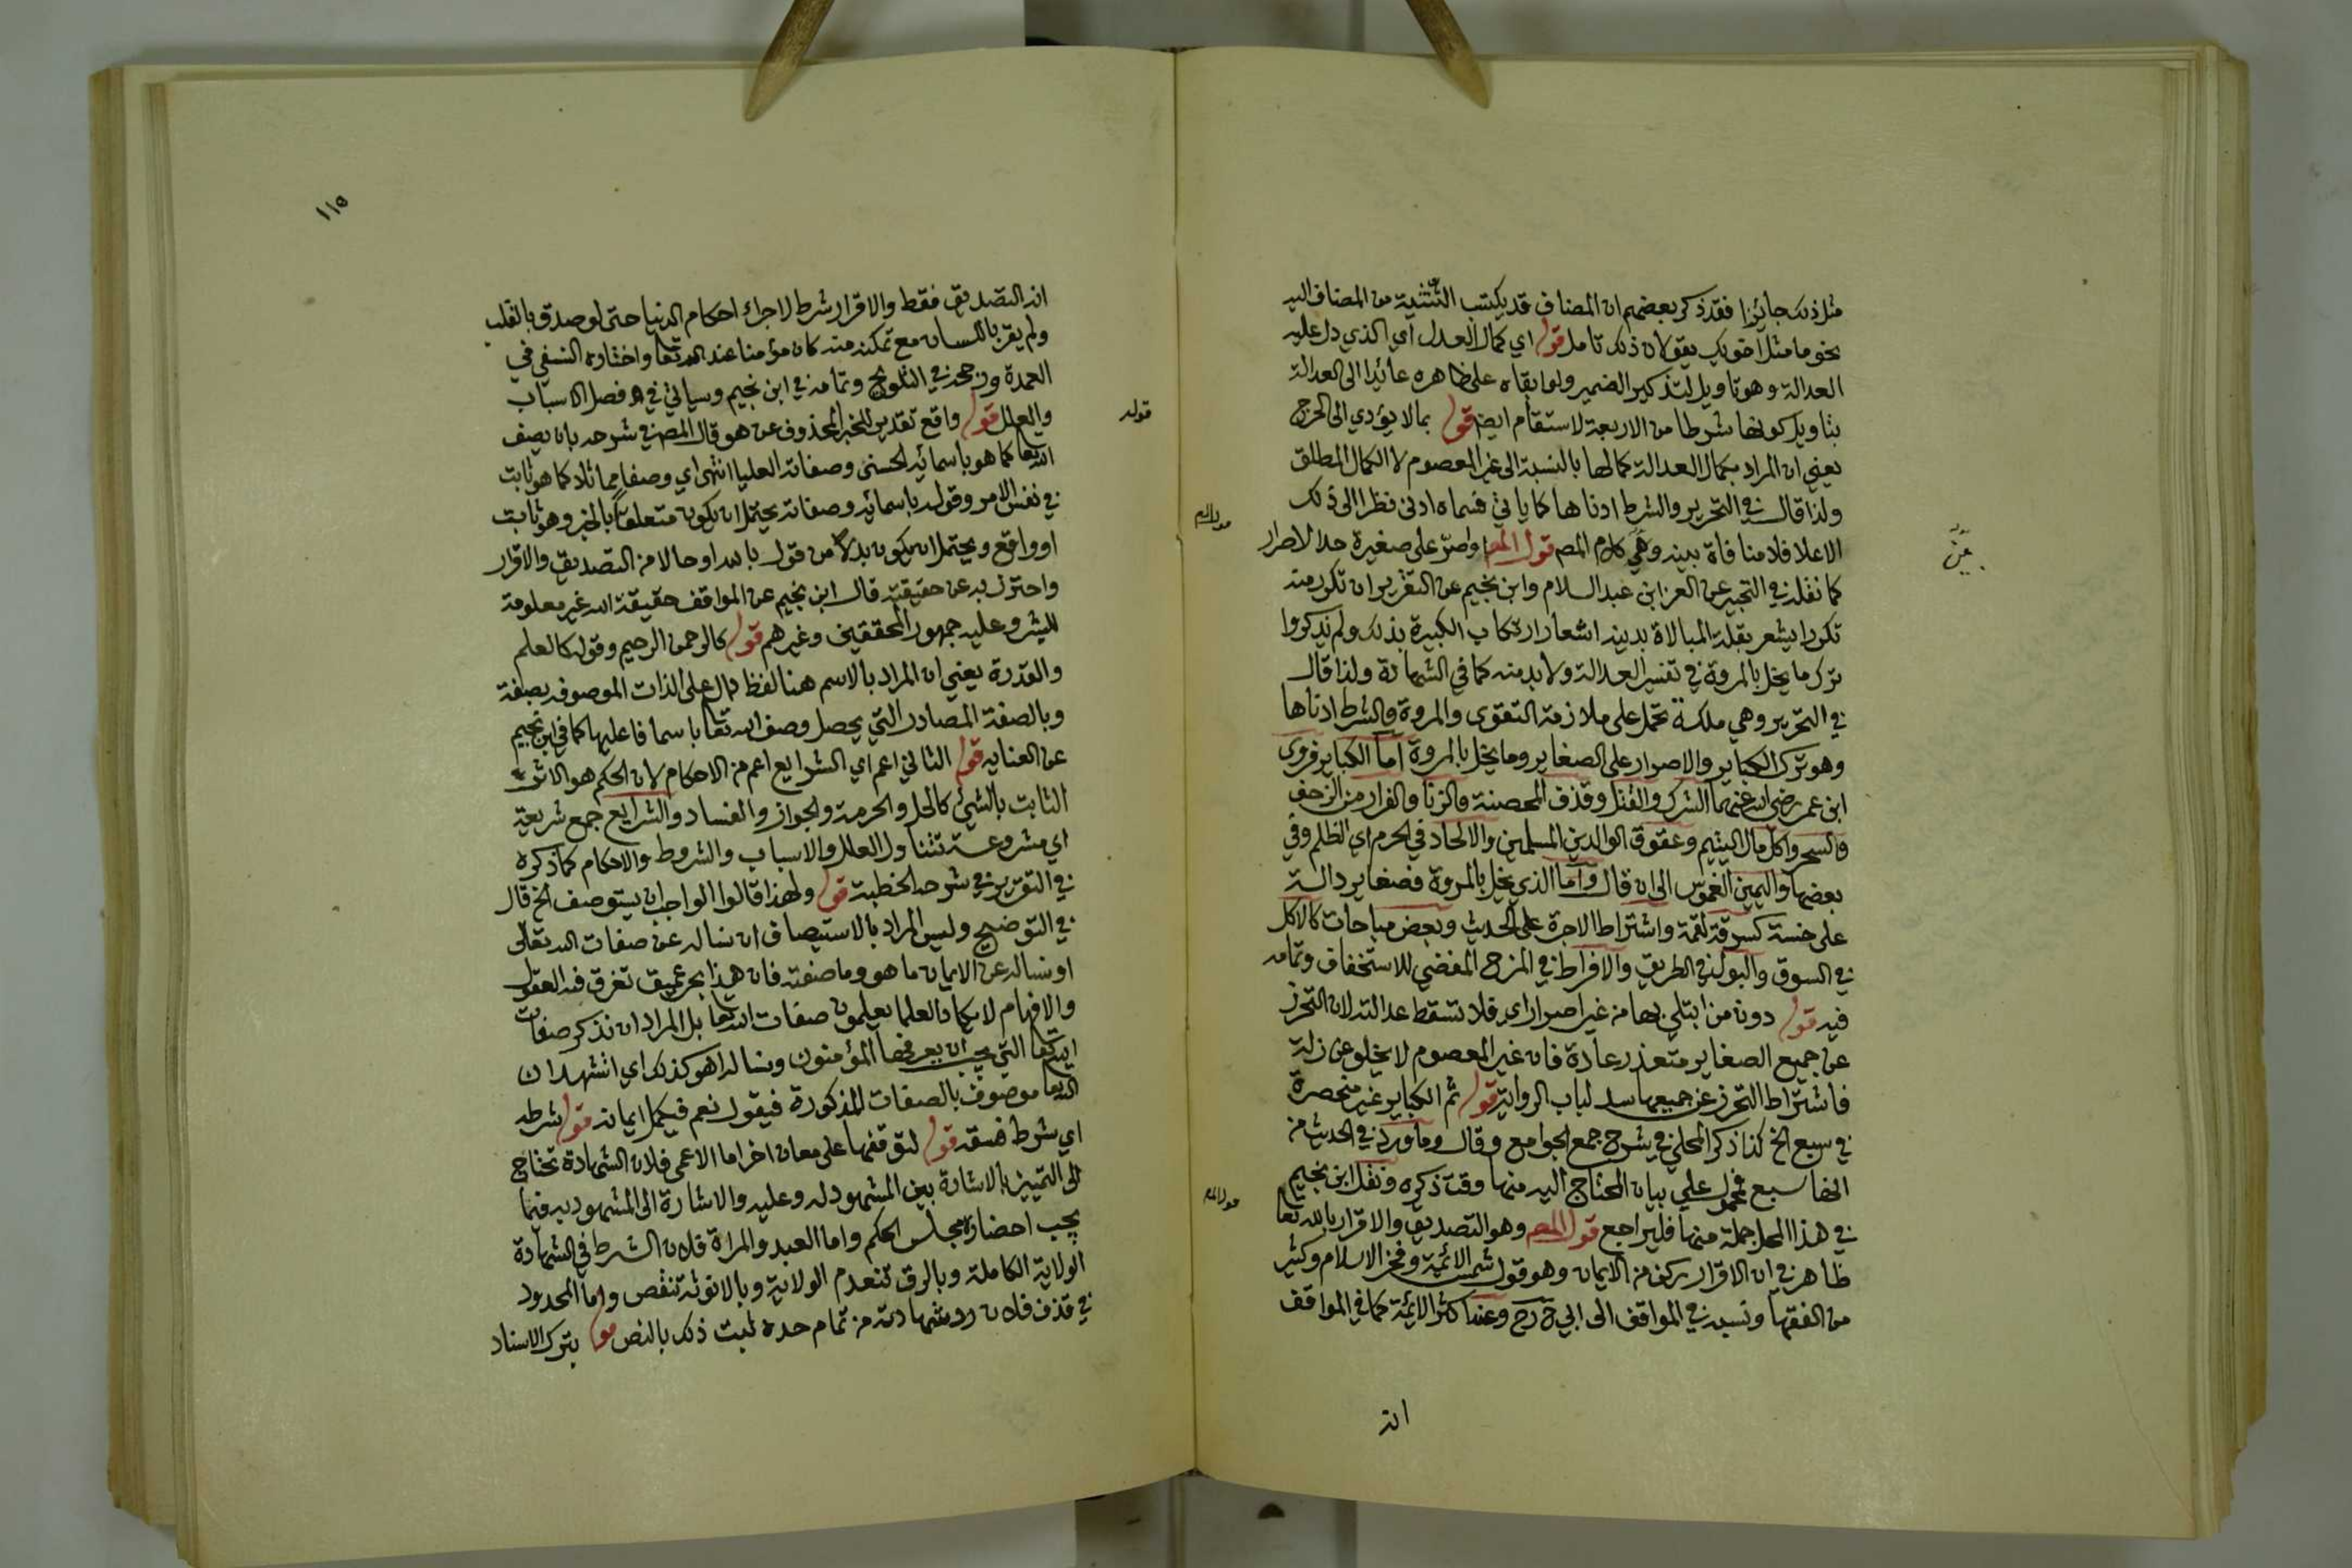 مثل ذلك جائزا فقد ذكر بعضهم ان المضاف قد يكتسب التثنية من المضاف اليه
نحو ما مثل اخويك يقولان ذلك تامل قوله اي كمال العدل اي الذي دل عليه
العدالة وهو تاويل لتذكير الضمير ولو ابقاه على ظاهره عائدا الى العدالة
بتاويل كونها شرطا من الاربعة لاستقام ايضا قوله بما لا يؤدي الى الحرج
يعني ان المراد بكمال العدالة كمالها بالنسبة الى غير المعصوم لا الكمال المطلق
ولذا قال في التحرير والشرط ادناها كما ياتي فسماه ادنى نظرا الى ذلك
الاعلا فلا منافاة بينه وبين كلام المصم قول المصم واصر على صغيرة حد الاصرار
كما نقله في التحبير عن العز ابن عبد السلام وابن نجيم عن التقرير ان تكرر منه
تكررا يشعر بقلة المبالاة بدينه اشعار ارتكاب الكبيرة بذلك ولم يذكروا
ترك ما يخل بالمروة في تفسير العدالة ولا بد منه كما في الشهادة ولذا قال
في التحرير وهي ملكة تحمل على ملازمة التقوى والمروة والشرط ادناها
وهو ترك الكباير والاصرار على الصغاير وما يخل بالمروة اما الكباير فروى
ابن عمر رضي الله عنهما الشرك والقتل وقذف المحصنة والزنا والفرار من الزحف
والسحر واكل مال اليتيم وعقوق الوالدين المسلمين والالحاد في الحرم اي الظلم وفي
بعضها واليمين الغموس الى ان قال واما الذي يخل بالمروة فصغاير دالة
على خسة كسرقة لقمة واشتراط الاجرة على الحديث وبعض مباحات كالاكل
في السوق والبول في الطريق والافراط في المزح المفضي للاستخفاف وتمامه
فيه قوله دون من ابتلي بها من غير اصرار اي فلا تسقط عدالته لان التحرز
عن جميع الصغاير متعذر عادة فان غير المعصوم لا يخلو عن زلة
فاشتراط التحرز عن جميعها سد لباب الرواية قوله ثم الكباير غير منحصرة
في سبع الخ كذا ذكر المحلي في شرح جمع الجوامع وقال وما ورد في الحديث من
انها سبع فمحمول على بيان المحتاج اليه منها وقت ذكره ونقل ابن نجيم
في هذا المحل جملة منها فليراجع قول المصم وهو التصديق والاقرار بالله تعا
ظاهر في ان الاقرار ركن من الايمان وهو قول شمس الائمة وفخر الاسلام وكثير
من الفقها ونسبه في المواقف الى ابي ح رح وعند اكثر الائمة كما في المواقف
انه
قول المصم
قول المصم
١١٥
انه التصديق فقط والاقرار شرط لاجراء احكام الدنيا حتى لو صدق بالقلب
ولم يقر باللسان مع تمكنه منه كان مؤمنا عند الله تعا واختاره النسفي في
العمدة ورجحه في التلويح وتمامه في ابن نجيم وسياتي في فصل الاسباب
والعلل قوله واقع تقدير للخبر المحذوف عن هو قال المصم في شرحه بان يصف
الله تعا كما هو باسمائه الحسنى وصفاته العليا انتهى اي وصفا مماثلا كما هو ثابت
في نفس الامر وقوله باسمائه وصفاته يحتمل ان يكون متعلقا بالخبر وهو ثابت
او واقع ويحتمل ان يكون بدلا من قوله بالله او حالا من التصديق والاقرار
واحترز به عن حقيقته قال ابن نجيم عن المواقف حقيقة الله غير معلومة
للبشر وعليه جمهور المحققين وغيرهم قوله كالرحمن الرحيم وقوله كالعلم
والقدرة يعني ان المراد بالاسم هنا لفظ دال على الذات الموصوفه بصفة
وبالصفة المصادر التي يحصل وصف الله تعا باسما فاعليها كما في ابن نجيم
عن العنايه قوله الثاني اعم اي الشرايع اعم من الاحكام لان الحكم هو الاثر
الثابت بالشيء كالحل والحرمة والجواز والفساد والشرايع جمع شريعة
اي مشروعة تتناول العلل والاسباب والشروط والاحكام كما ذكره
في التقرير في شرحه الخطبة قوله ولهذا قالوا الواجب ان يستوصف الخ قال
في التوضيح وليس المراد بالاستيصاف ان نساله عن صفات الله تعالى
او نساله عن الايمان ما هو وما صفته فان هذا بحر عميق تغرق فيه العقول
والافهام لا يكاد العلما يعلمون صفات الله تعا بل المراد ان نذكر صفات
الله تعا التي يجب ان يعرفها المؤمنون ونساله اهو كذلك اي اتشهد ان
الله تعا موصوف بالصفات المذكورة فيقول نعم فيكمل ايمانه قوله شرطه
اي شرط قوله لتوقفها على معان اخر اما الاعمى فلان الشهادة تحتاج
الى التمييز بالاشارة بين المشهود له وعليه والاشارة الى المشهود به فيما
يجب احضاره مجلس الحكم واما العبد والمراة فلان الشرط في الشهادة
الولاية الكاملة وبالرق تنعدم الولاية وبالانوثة تنقص واما المحدود
في قذف فلان رد شهادته من تمام حده ثبت ذلك بالنص قوله بترك الاسناد
قوله